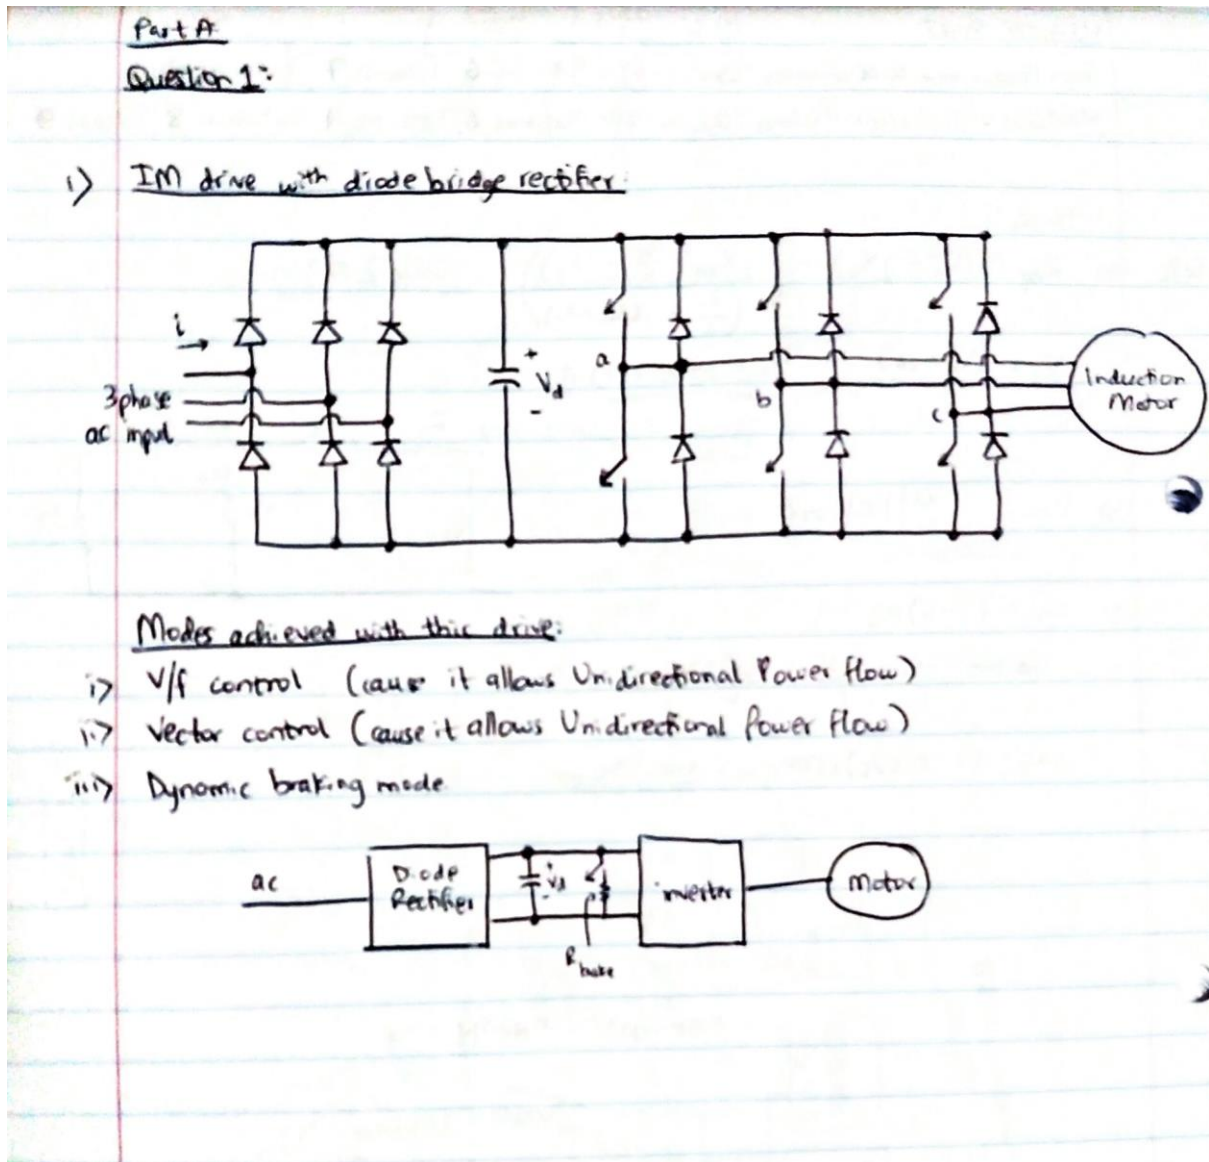 Part A
Question 1:
i) IM drive with diode bridge rectifier.
i
3 phase
ac input
+
Vd
-
a
b
c
Induction
Motor
Modes achieved with this drive:
i) V/f control (cause it allows Unidirectional Power flow)
ii) Vector control (cause it allows Unidirectional Power Flow)
iii) Dynamic braking mode.
ac
Diode
Rectifier
+
Vd
-
inverter
motor
Rbrake